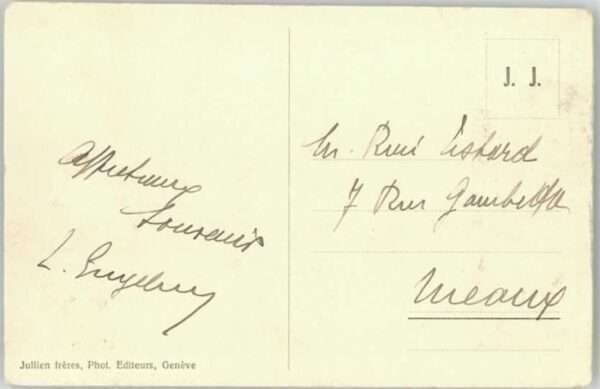 Affectueux
Souvenir
L.
J. J.
M. René
7 Rue Gambetta
Meaux
Jullien frères, Phot. Editeurs, Genève